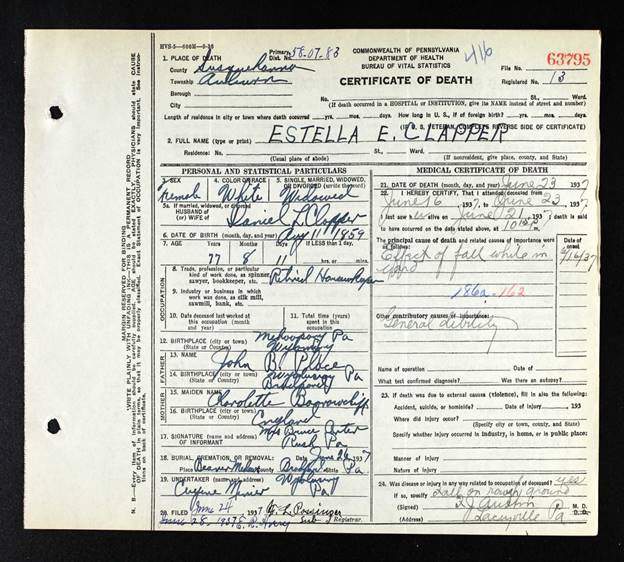 HVS-5-600M-9-36
COMMONWEALTH OF PENNSYLVANIA
DEPARTMENT OF HEALTH
BUREAU OF VITAL STATISTICS
CERTIFICATE OF DEATH
416
63795
File No.
Registered No. 13
1 PLACE OF DEATH
County Susquehanna
Township Auburn
Borough
City
Primary Dist. No. 58-07-83
No. St. Ward.
(If death occurred in a HOSPITAL or INSTITUTION, give its NAME instead of street and number)
Length of residence in city or town where death occurred yrs. mos. days. How long in U. S., if of foreign birth? yrs. mos. days
(IF U. S. VETERAN, COMPLETE REVERSE SIDE OF CERTIFICATE)
2. FULL NAME (type or print) ESTELLA E. CLAPPER
Residence: No. St. Ward.
(Usual place of abode) (If nonresident, give place, county, and State)
PERSONAL AND STATISTICAL PARTICULARS
3. SEX Female
4. COLOR OR RACE White
5. SINGLE, MARRIED, WIDOWED, OR DIVORCED (write the word) Widowed
5a. If married, widowed, or divorced
HUSBAND of
(or) WIFE of Daniel L. Clapper
6. DATE OF BIRTH (month, day, and year) Aug 11 1859
7. AGE Years 77 Months 8 Days 11 If LESS than 1 day, hrs. or min.
OCCUPATION
8. Trade, profession, or particular kind of work done, as spinner, sawyer, bookkeeper, etc. Retired Housekeeper
9. Industry or business in which work was done, as silk mill, sawmill, bank, etc.
10. Date deceased last worked at this occupation (month and year)
11. Total time (years) spent in this occupation
12. BIRTHPLACE (city or town) Mehoopany Pa
(State or Country) Wyoming
FATHER
13. NAME John B. Place
14. BIRTHPLACE (city or town) Pa
(State or Country)
MOTHER
15. MAIDEN NAME
16. BIRTHPLACE (city or town) England
(State or Country)
17. SIGNATURE (name and address) OF INFORMANT Mrs Bruce Carter
Rush Pa
18. BURIAL, CREMATION, OR REMOVAL: Date June 26 1937
Place Beaver Meadow Pa.
19. UNDERTAKER (name and address) Wyalusing
Eugene Pa
20. FILED June 24 1937
June 28, 1937 Sub Registrar.
MEDICAL CERTIFICATE OF DEATH
21. DATE OF DEATH (month, day, and year) June 23 1937
22. I HEREBY CERTIFY, That I attended deceased from
June 16 1937, to June 23 1937
I last saw alive on June 21 1937, death is said
to have occurred on the date stated above, at
The principal cause of death and related causes of importance were as follows: Date of onset
Effect of fall while in yard 6/16/37
186a-162
Other contributory causes of importance:
General debility
Name of operation Date of
What test confirmed diagnosis? Was there an autopsy?
23. If death was due to external causes (violence), fill in also the following:
Accident, suicide, or homicide? Date of injury 193
Where did injury occur?
(Specify city or town, county, and State)
Specify whether injury occurred in industry, in home, or in public place:
Manner of injury
Nature of injury
24. Was disease or injury in any way related to occupation of deceased? yes
If so, specify Fall on rough ground
(Signed) Austin M. D.
Laceyville Pa
MARGIN RESERVED FOR BINDING